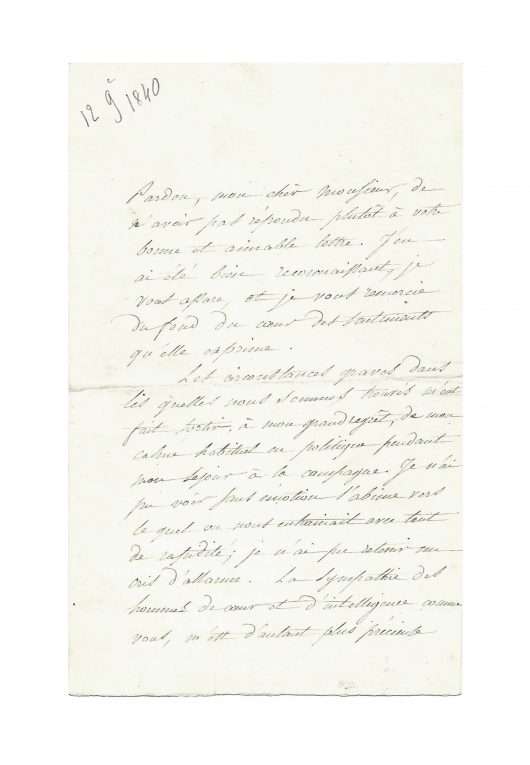 12 9 1840
Pardon, mon cher Monsieur, de
n'avoir pas répondu plutôt à votre
bonne et aimable lettre. J'en
ai été bien reconnaissant, je
vous assure, et je vous remercie
du fond du cœur des sentiments
qu'elle exprime.
Les circonstances graves dans
les quelles nous sommes m'ont
fait sortir, à mon grand regret, de mon
calme habituel en politique pendant
mon séjour à la campagne. Je n'ai
pu voir sans émotion l'abîme vers
le quel on nous entrainait avec tant
de rapidité; je n'ai pu retenir un
cri d'allarme. La sympathie des
hommes de cœur et d'intelligence comme
vous, m'est d'autant plus précieuse